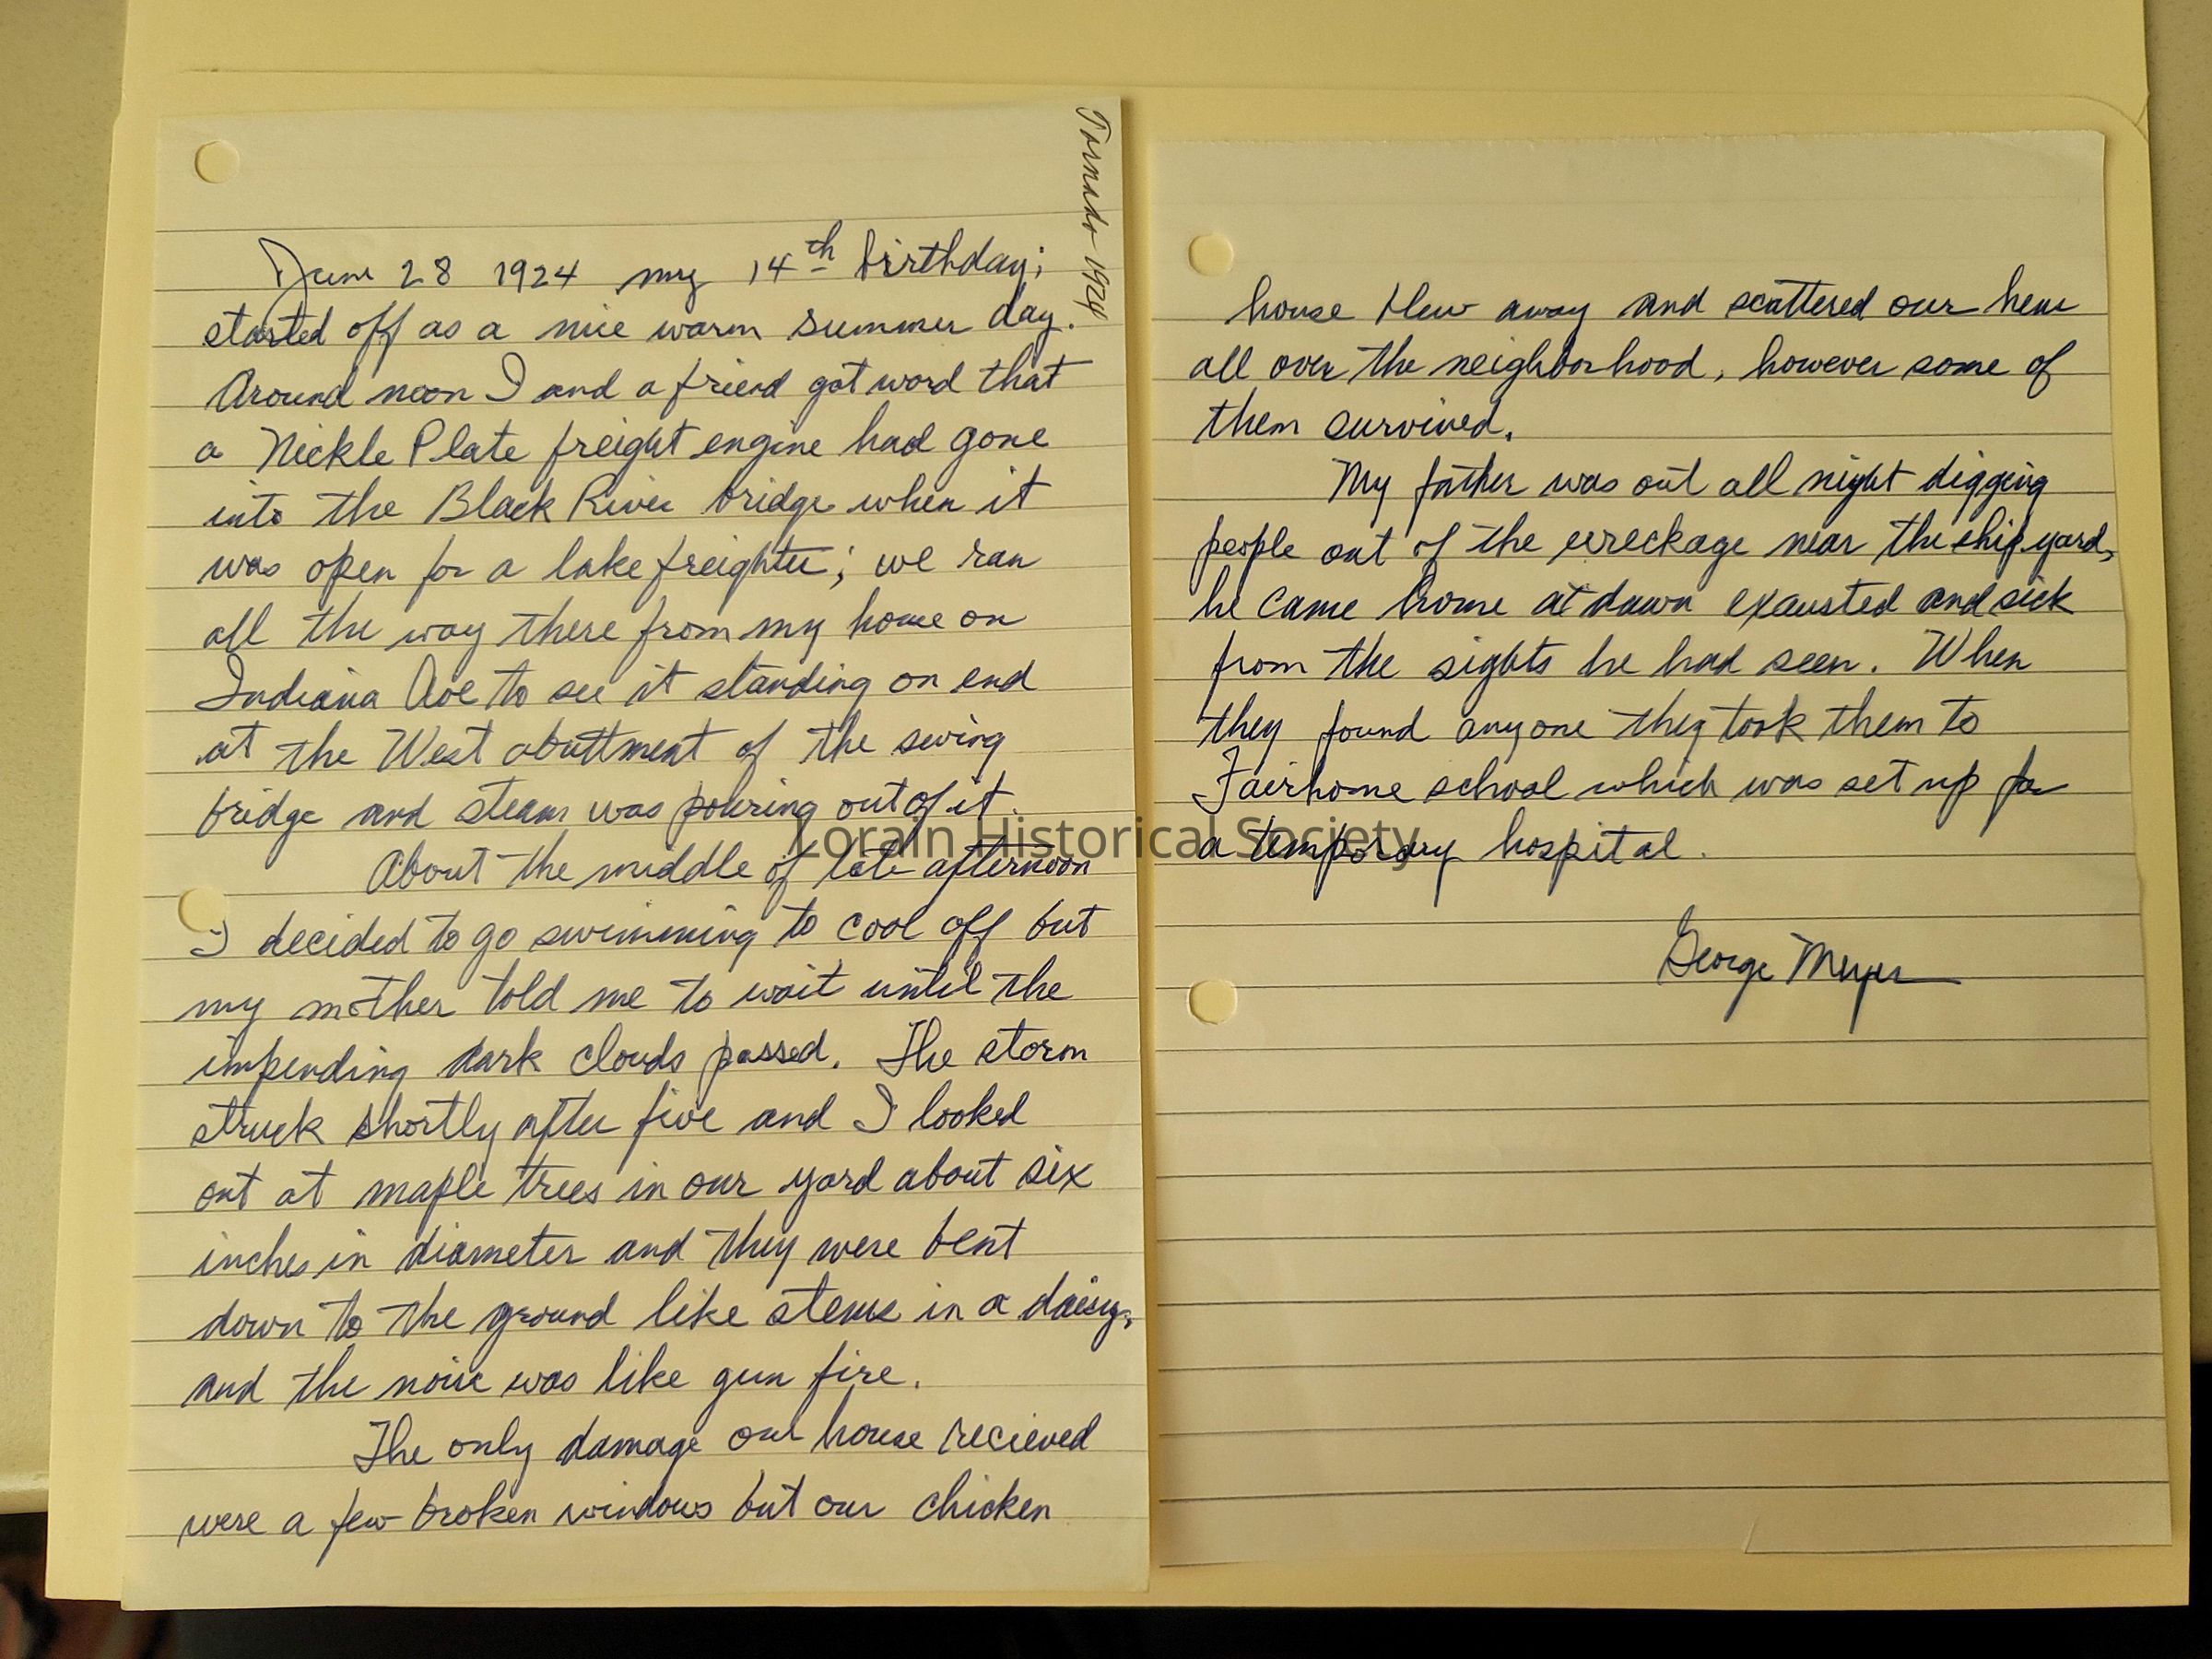 Tornado 1924
June 28 1924 my 14th birthday;
started off as a nice warm summer day.
Around noon I and a friend got word that
a Nickle Plate freight engine had gone
into the Black River bridge when it
was open for a lake freighter; we ran
all the way there from my home on
Indiana Ave to see it standing on end
at the West abuttment of the swing
bridge and steam was pouring out of it.
About the middle of late afternoon
I decided to go swimming to cool off but
my mother told me to wait until the
impending dark clouds passed. The storm
struck shortly after five and I looked
out at maple trees in our yard about six
inches in diameter and they were bent
down to the ground like stems in a daisy,
and the noise was like gun fire.
The only damage our house recieved
were a few broken windows but our chicken
house blew away and scattered our hens
all over the neighborhood, however some of
them survived.
My father was out all night digging
people out of the wreckage near the ship yard,
he came home at dawn exausted and sick
from the sights he had seen. When
they found anyone they took them to
Fairhome school which was set up for
a temporary hospital.
George Meyer
Lorain Historical Society